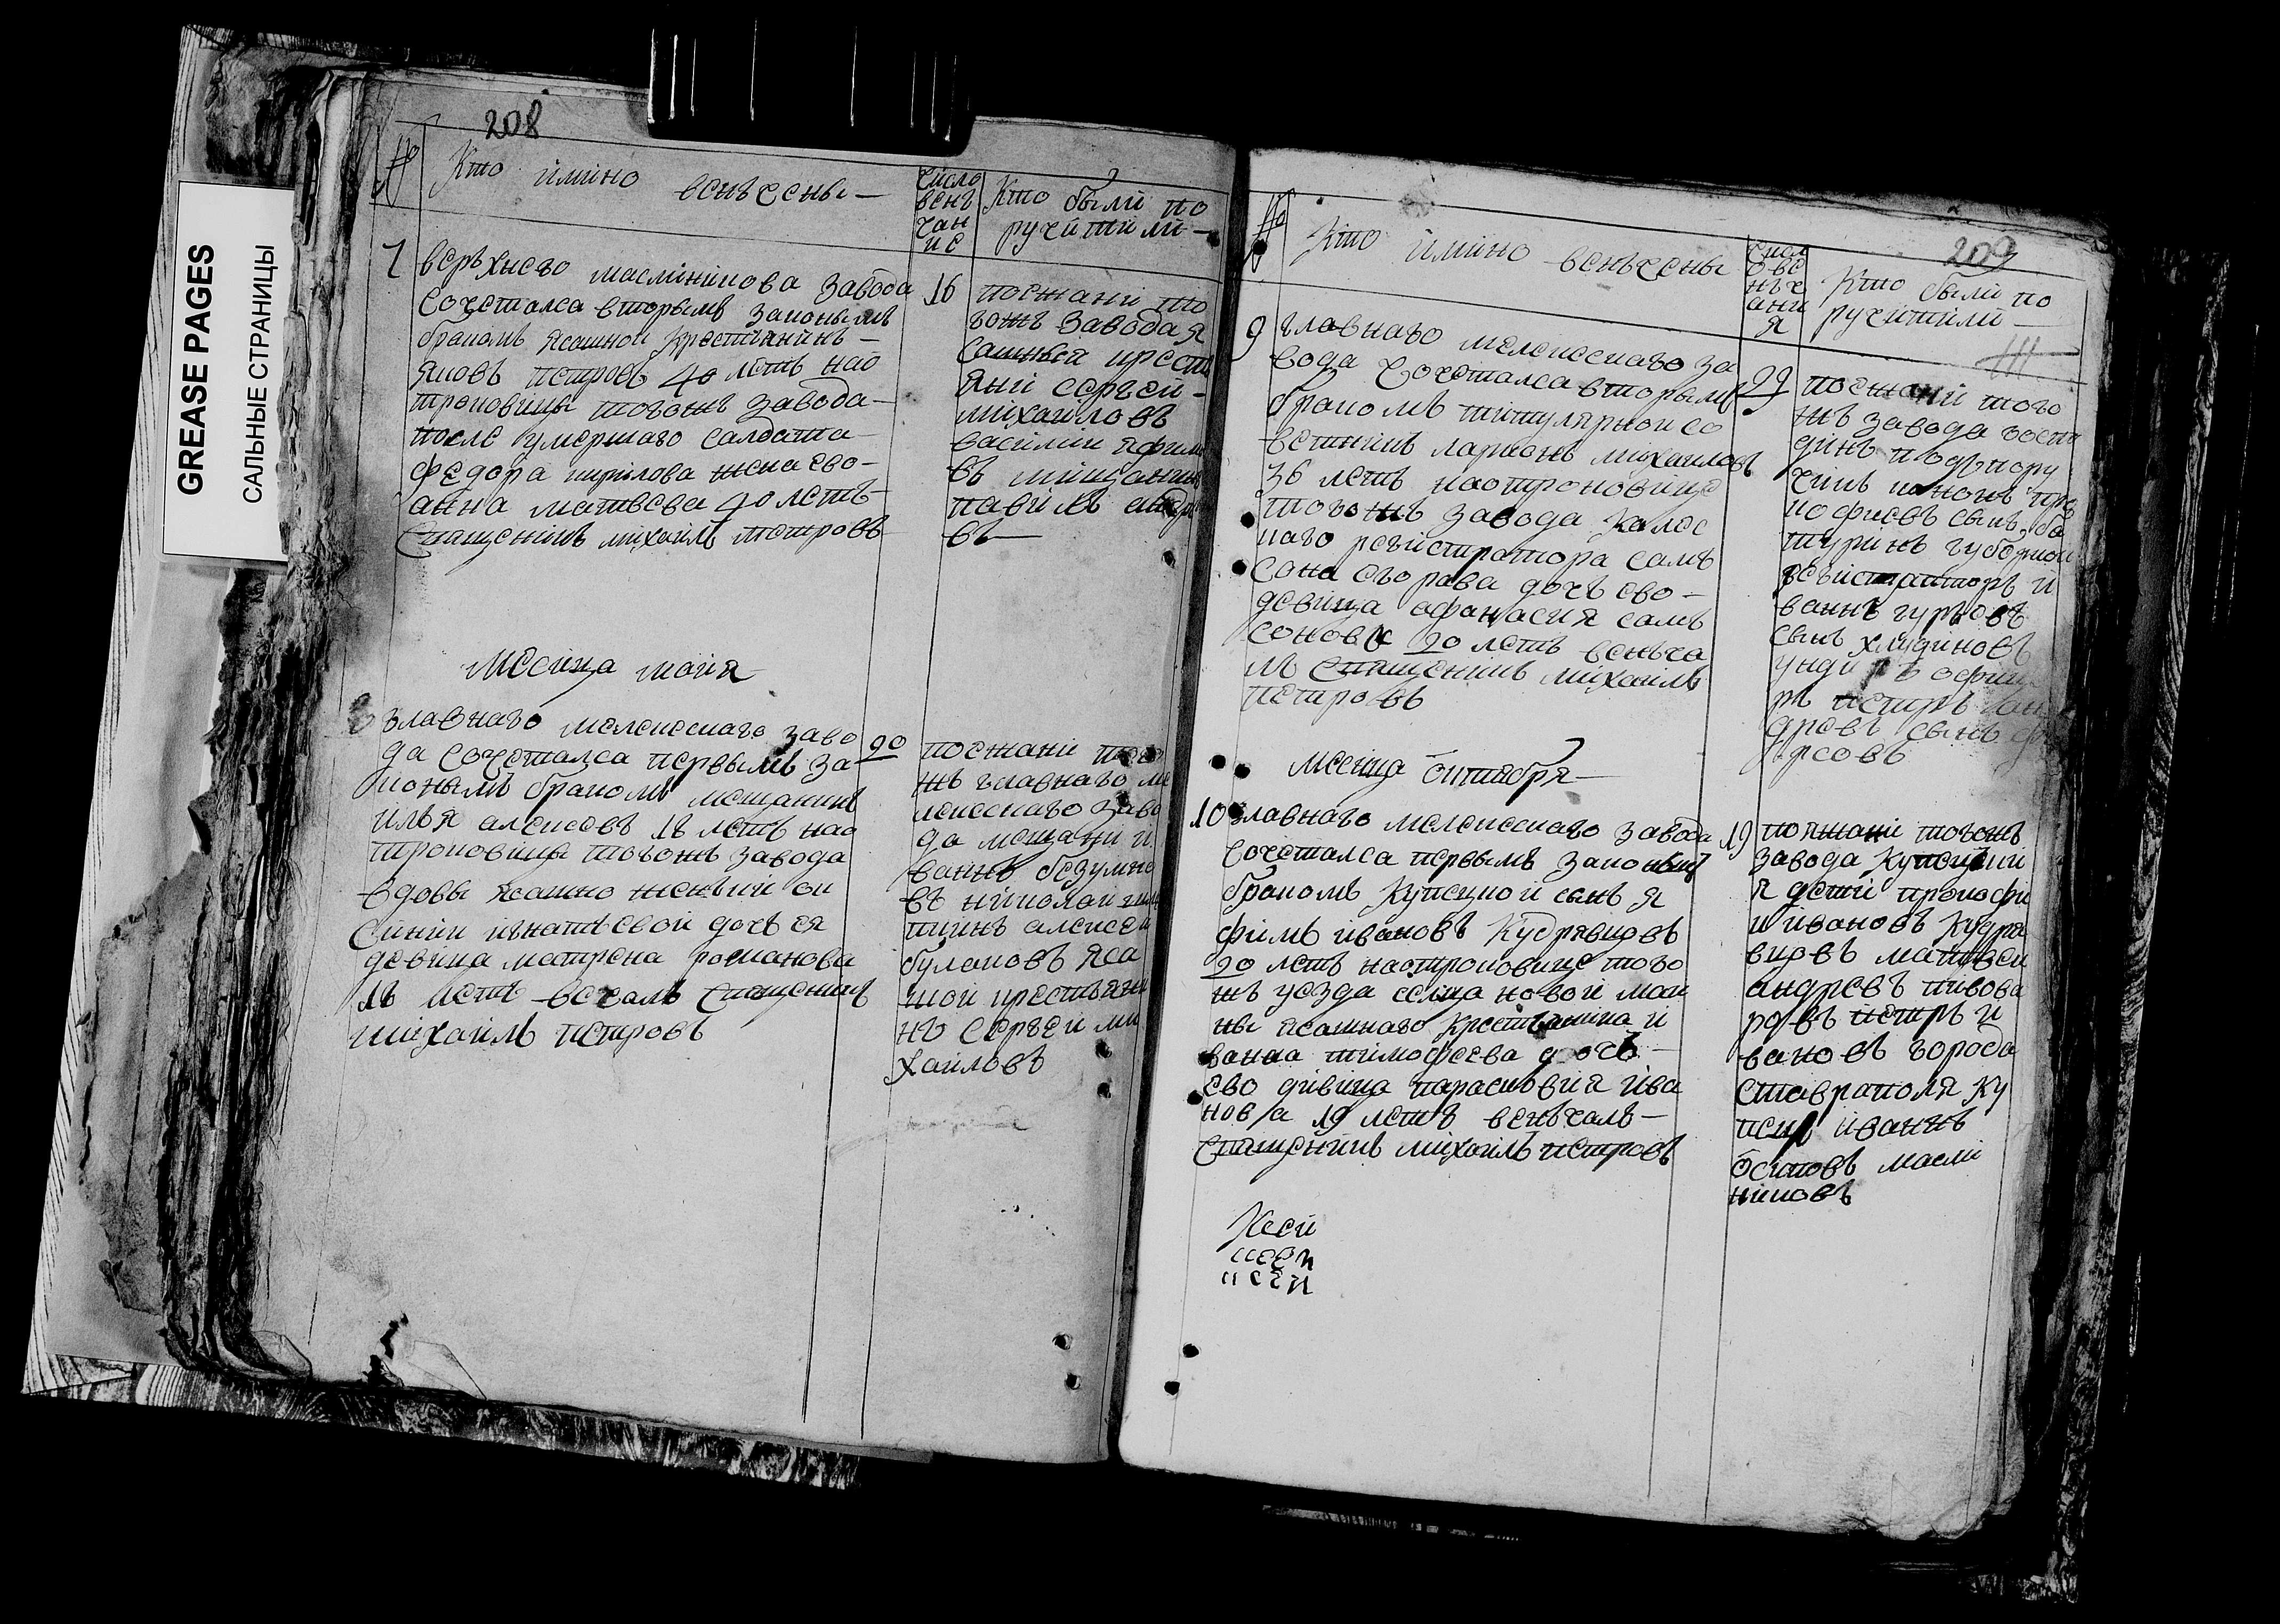 GREASE PAGES
САЛЬНЫЕ СТРАНИЦЫ
208
№
Кто имино венъчены
число
венъ
чан
ие
Кто были по
ручитили
7
веръхнего масленикова завода
Сочетался вторымъ законымъ
бракомъ ясашной крестьянинъ
яковъ петровъ 40 летъ нао
троковицы тогожъ завода
после умершаго салдата
федора кирилова жена ево
анна матвева 40 летъ
Сващенникъ михаилъ петровъ
16
поежани то
гожъ завода я
сашныи крест
яни серъгеи
михаиловъ
василии яфимо
въ мищанинъ
павилъ андре
въ
месица маия
8
главнаго мелекескаго заво
да сочетался первымъ за
конымъ бракомъ мещанинъ
илья алексевъ 18 летъ нао
троковицы тогожъ завода
вдовы ясашно женъки ок
синии игнатьевой дочь ея
девица матрена романова
18 летъ вечалъ Сващеникъ
михаилъ петровъ
20
поежани того
жъ главнаго ми
лекескаго заво
да мещани и
ванъ безумно
въ николаи
алексеи
булаковъ яса
шной крестьяни
нъ серъгеи ми
хаиловъ
209
№
Кто имино венъчены
Числ
о ве
нъч
ани
я
Кто были по
ручитили
9
главнаго мелекескаго за
вода Сочетался вторымъ
бракомъ титулярной со
ветникъ ларионъ михаиловъ
36 летъ наотроковице
тогожъ завода колеc
каго регистратора самъ
сона егорава дочъ ево
девица афанасия самъ
сонова 20 летъ венъча
лъ Сващенникъ михаилъ
петровъ
29
поежани того
жъ завода госпо
динъ подъпору
чикъ
сынъ ба
туринъ губернской
регистраторъ и
ванъ гурьевъ
сынъ хлудиновъ
ундиръ офице
ръ петръ ан
древъ сынъ
месица октября
10
главнаго мелекескаго завода
Сочетался первымъ законымъ
бракомъ купецкой сынъ я
фимъ ивановъ Кудрявцовъ
20 летъ наотроковице того
жъ уезда селца новой маи
ны ясашнаго Крестьянина и
ванна тимофеева дочъ
ево дивица парасковия ива
нова 19 летъ венъчалъ
Сващенникъ михаилъ петровъ
19
поежани тогожъ
завода купецкии
я дети прокофи
и ивановъ Кудря
вцовъ матвеи
андревъ пивова
ровъ петръ и
вановъ города
Ставраполя Ку
пецъ иванъ
осиповъ масле
никовъ